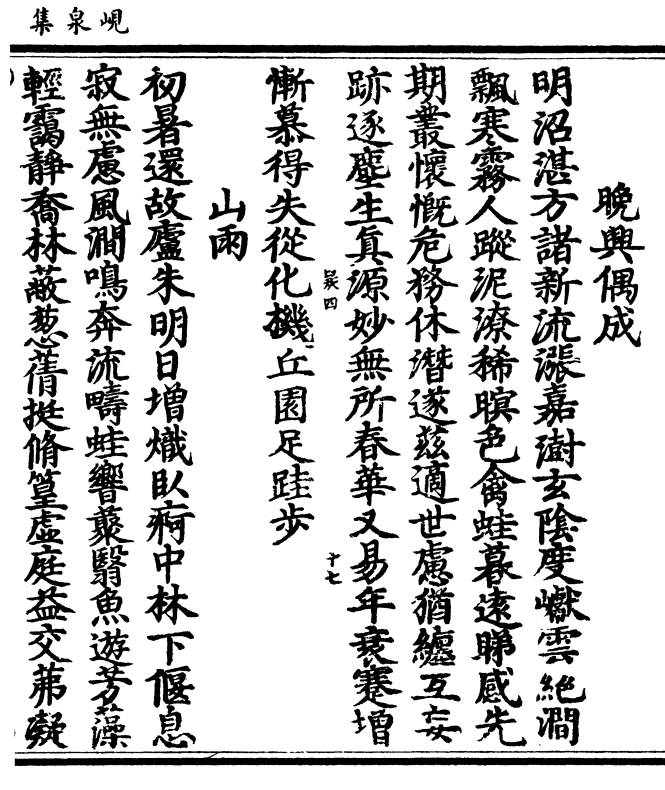 峴泉集
晚興偶成
明沼湛方諸新流漲嘉澍玄陰度巘雲絕澗
飄寒霧人蹤泥潦稀暝色禽蛙暮遠睇感先
期叢懷慨危務休潛遂茲適世慮猶纏互妄
跡逐塵生眞源妙無所春華又易年衰蹇增
慚慕得失從化機丘園足跬步
山雨
初暑還故廬朱明日增熾臥痾中林下偃息
寂無慮風澗鳴奔流疇蛙響蕟翳魚遊芳藻
輕靄靜喬林蔽葱蒨挺脩篁虛庭益交茀凝
四
十七